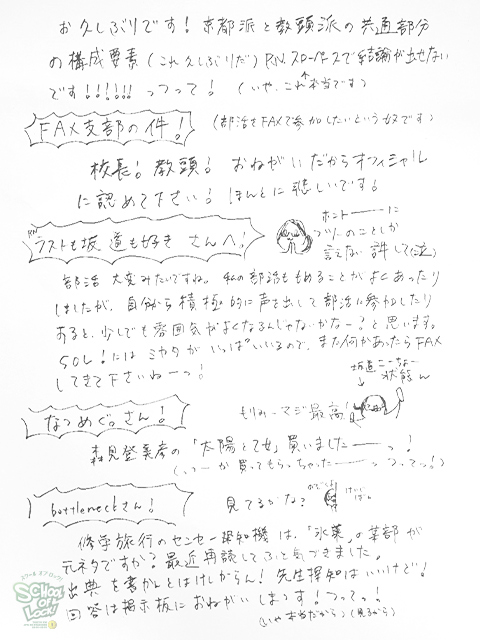 お久しぶりです！京都派と教頭派の共通部分
の構成要素（これ久しぶりだ）R.N.スローペースで結論が出せない
です！！！！！！っつって！（いや、これ本当です）
FAX支部の件！（部活をFAXで参加したいという奴です）
校長！教頭！おねがいだからオフィシャル
に認めて下さい！ほんとに悲しいです！
RN ラストも坂道も好きさんへ！
ホントーーに
フツーのことしか
言えない許して(泣)
部活大変みたいですね。私の部活ももめることがよくあったり
しましたが、自分から積極的に声を出して部活に参加したり
すると、少しでも雰囲気がよくなるんじゃないかなー！と思います。
SOL！にはミカタがいっぱいいるので、また何かあったらFAX
してきて下さいねーっ！
なつめぐ。さん！
もりみーマジ最高！
坂道こーちょー
状態
森見登美彦の「太陽と乙女」買いましたーーっ！
（いつーか買ってもらっちゃったーーっつって！）
bottleneckさん！
見てるかな？
けいじばん
修学旅行のセンセー探知機は、「氷菓」の某部が
元ネタですか？最近再読してふと気づきました。
出典を書かんとはけしからん！先生探知はいいけど！
回答は掲示板におねがいしまっす！つってっ！
（いや本当だから）（見るから）
スクール オブ ロック！
SCHOOL OF LOCK!